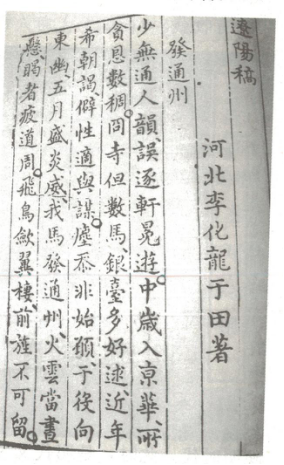 遼陽稿
河北李化龍于田著
發通州
少無適人韻誤逐軒冕遊中歲入京華所
貪恩數稠冏寺但數馬銀臺多好逑近年
希朝謁僻性適與謀塵忝非始願于役向
東幽五月盛炎威我馬發通州火雲當晝
懸暍者疲道周飛鳥歛翼棲前旌不可留